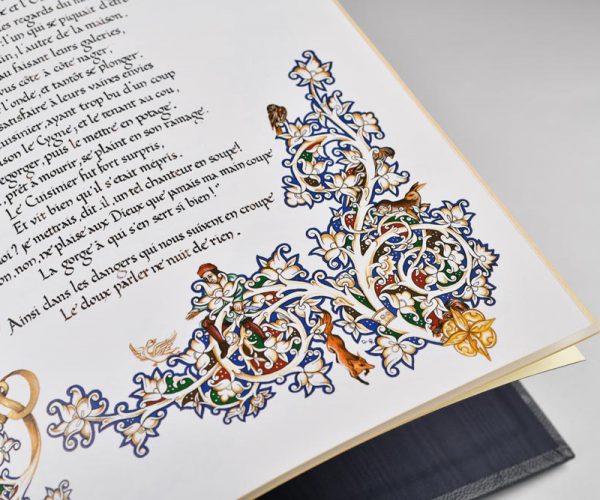 e et l'O
regards du
l'un qui se piquait d'être
l'autre de la maison.
faisant leurs galeries,
côte à côte nager,
l'onde, et tantôt se plonger,
satisfaire à leurs vaines envies
ayant trop bu d'un coup
le Cygne, et le tenant au cou,
égorger, puis le mettre en potage.
prêt à mourir, se plaint en son ramage.
Le Cuisinier fut fort surpris,
Et vit bien qu'il s'était mépris.
je mettrais dit-il, un tel chanteur en soupe!
non, ne plaise aux Dieux que jamais ma main coupe
La gorge à qui s'en sert si bien!"
Ainsi dans les dangers qui nous suivent en croupe
Le doux parler ne nuit de rien.